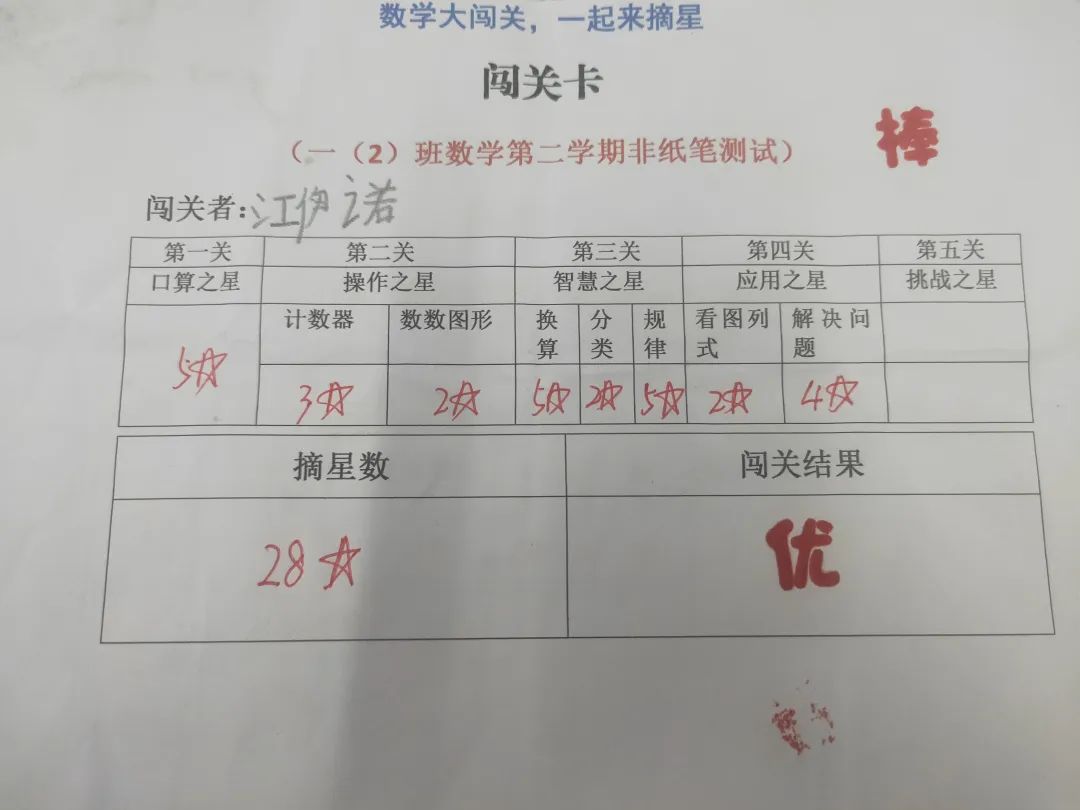 数学大闯关，一起来摘星
闯关卡
棒
（一（2）班数学第二学期非纸笔测试）
闯关者：江伊诺
第一关 第二关 第三关 第四关 第五关
口算之星 操作之星 智慧之星 应用之星 挑战之星
计数器 数数图形 换算 分类 规律 看图列式 解决问题
5☆ 3☆ 2☆ 5☆ 2☆ 5☆ 2☆ 4☆
摘星数 闯关结果
28☆ 优